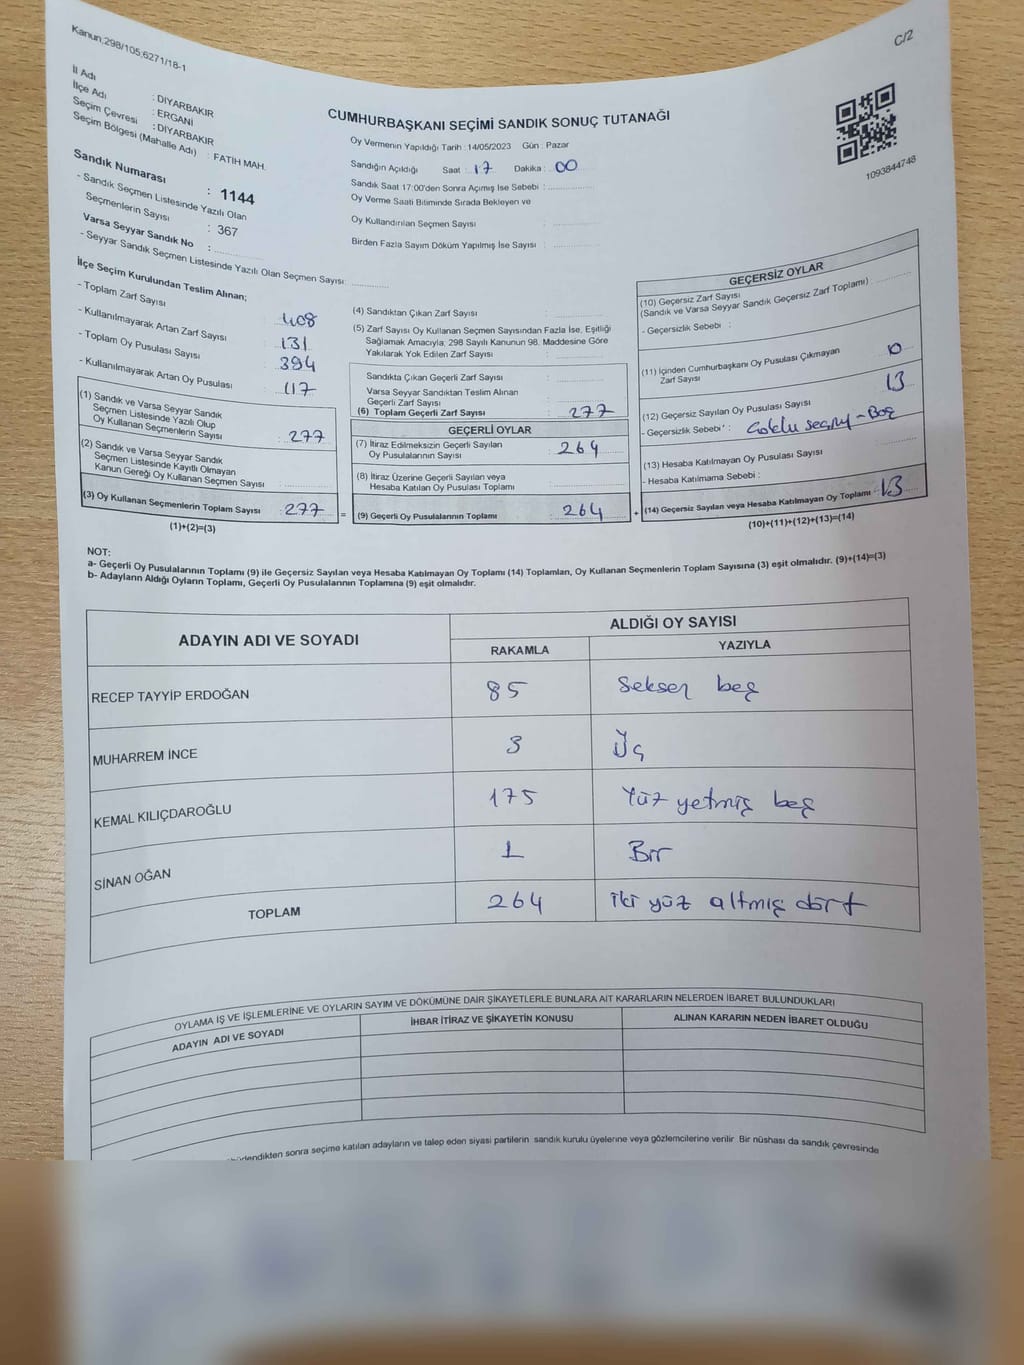 Kanun;298/105,6271/18-1
C/2
İl Adı : DİYARBAKIR
İlçe Adı : ERGANİ
Seçim Çevresi : DİYARBAKIR
Seçim Bölgesi (Mahalle Adı) : FATİH MAH.
CUMHURBAŞKANI SEÇİMİ SANDIK SONUÇ TUTANAĞI
Oy Vermenin Yapıldığı Tarih : 14/05/2023 Gün : Pazar
Sandığın Açıldığı Saat : 17 Dakika : 00
Sandık Saat 17:00'den Sonra Açımış İse Sebebi :
Oy Verme Saati Bitiminde Sırada Bekleyen ve
Oy Kullandırılan Seçmen Sayısı :
Birden Fazla Sayım Döküm Yapılmış İse Sayısı :
1093844748
Sandık Numarası : 1144
- Sandık Seçmen Listesinde Yazılı Olan
Seçmenlerin Sayısı : 367
Varsa Seyyar Sandık No :
- Seyyar Sandık Seçmen Listesinde Yazılı Olan Seçmen Sayısı:
İlçe Seçim Kurulundan Teslim Alınan;
- Toplam Zarf Sayısı : 408
- Kullanılmayarak Artan Zarf Sayısı : 131
- Toplam Oy Pusulası Sayısı : 394
- Kullanılmayarak Artan Oy Pusulası : 117
(1) Sandık ve Varsa Seyyar Sandık
Seçmen Listesinde Yazılı Olup
Oy Kullanan Seçmenlerin Sayısı : 277
(2) Sandık ve Varsa Seyyar Sandık
Seçmen Listesinde Kayıtlı Olmayan
Kanun Gereği Oy Kullanan Seçmen Sayısı :
(3) Oy Kullanan Seçmenlerin Toplam Sayısı : 277 =
(1)+(2)=(3)
(4) Sandıktan Çıkan Zarf Sayısı :
(5) Zarf Sayısı Oy Kullanan Seçmen Sayısından Fazla İse, Eşitliği
Sağlamak Amacıyla; 298 Sayılı Kanunun 98. Maddesine Göre
Yakılarak Yok Edilen Zarf Sayısı :
Sandıkta Çıkan Geçerli Zarf Sayısı :
Varsa Seyyar Sandıktan Teslim Alınan
Geçerli Zarf Sayısı :
(6) Toplam Geçerli Zarf Sayısı : 277
GEÇERLİ OYLAR
(7) İtiraz Edilmeksizin Geçerli Sayılan
Oy Pusulalarının Sayısı : 264
(8) İtiraz Üzerine Geçerli Sayılan veya
Hesaba Katılan Oy Pusulası Toplamı :
(9) Geçerli Oy Pusulalarının Toplamı : 264 +
GEÇERSİZ OYLAR
(10) Geçersiz Zarf Sayısı
(Sandık ve Varsa Seyyar Sandık Geçersiz Zarf Toplamı) :
- Geçersizlik Sebebi :
(11) İçinden Cumhurbaşkanı Oy Pusulası Çıkmayan
Zarf Sayısı : 0
(12) Geçersiz Sayılan Oy Pusulası Sayısı : 13
- Geçersizlik Sebebi : Boş
(13) Hesaba Katılmayan Oy Pusulası Sayısı
- Hesaba Katılmama Sebebi :
(14) Geçersiz Sayılan veya Hesaba Katılmayan Oy Toplamı : 13
(10)+(11)+(12)+(13)=(14)
NOT:
a- Geçerli Oy Pusulalarının Toplamı (9) ile Geçersiz Sayılan veya Hesaba Katılmayan Oy Toplamı (14) Toplamları, Oy Kullanan Seçmenlerin Toplam Sayısına (3) eşit olmalıdır. (9)+(14)=(3)
b- Adayların Aldığı Oyların Toplamı, Geçerli Oy Pusulalarının Toplamına (9) eşit olmalıdır.
ADAYIN ADI VE SOYADI
ALDIĞI OY SAYISI
RAKAMLA YAZIYLA
RECEP TAYYİP ERDOĞAN 85 Seksen beş
MUHARREM İNCE 3 Üç
KEMAL KILIÇDAROĞLU 175 Yüz yetmiş beş
SİNAN OĞAN 1 Bir
TOPLAM 264 iki yüz altmış dört
OYLAMA İŞ VE İŞLEMLERİNE VE OYLARIN SAYIM VE DÖKÜMÜNE DAİR ŞİKAYETLERLE BUNLARA AİT KARARLARIN NELERDEN İBARET BULUNDUKLARI
ADAYIN ADI VE SOYADI İHBAR İTİRAZ VE ŞİKAYETİN KONUSU ALINAN KARARIN NEDEN İBARET OLDUĞU
sonra seçime katılan adayların ve talep eden siyasi partilerin sandık kurulu üyelerine veya gözlemcilerine verilir. Bir nüshası da sandık çevresinde